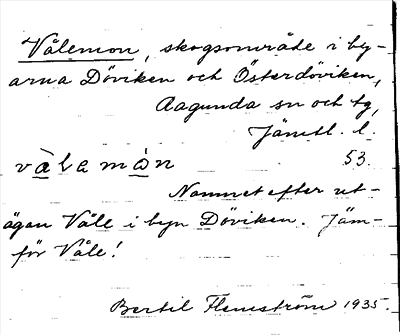 Vålemon, skogsområde i by-
arna Döviken och Österdöviken,
Ragunda sn och tg,
Jämtl. l.
våla mòn 53.
Namnet efter ut-
ägan Våle i byn Döviken. Jäm-
för Våle!
Bertil Flemström 1935.